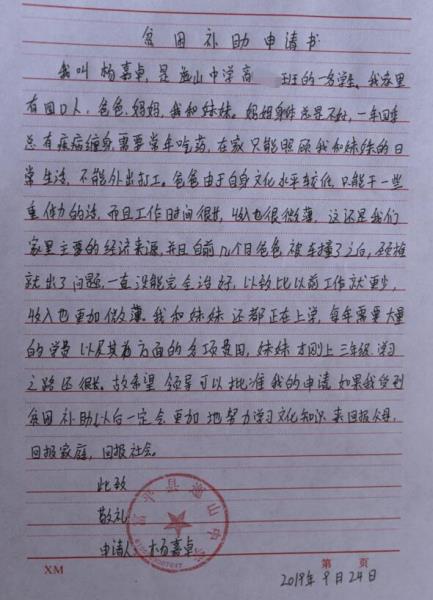 贫困补助申请书
我叫杨嘉卓,是 山中学高 班的一名学生。我家里
有四口人,爸爸,妈妈,我和妹妹。妈妈身体总是不好,一年四季
总有疾病缠身,需要常年吃药,在家只能照顾我和妹妹的日
常生活,不能外出打工。爸爸由于自身文化水平较低,只能干一些
重体力的活,而且工作时间很长,收入也很微薄,这还是我们
家里主要的经济来源,并且自前几个月爸爸被车撞了之后,颈椎
就出了问题,一直没能完全治好,以致比以前工作就更少,
收入也更加微薄。我和妹妹还都正在上学,每年需要大量
的学费以及其为方面的各项费用,妹妹才刚上三年级,学习
之路还很长。故希望领导可以批准我的申请,如果我受到
贫困补助,以后一定会更加地努力学习文化知识来回报父母,
回报家庭,回报社会。
此致
敬礼
申请人 杨嘉卓
XM
第 页
2019年9月24日